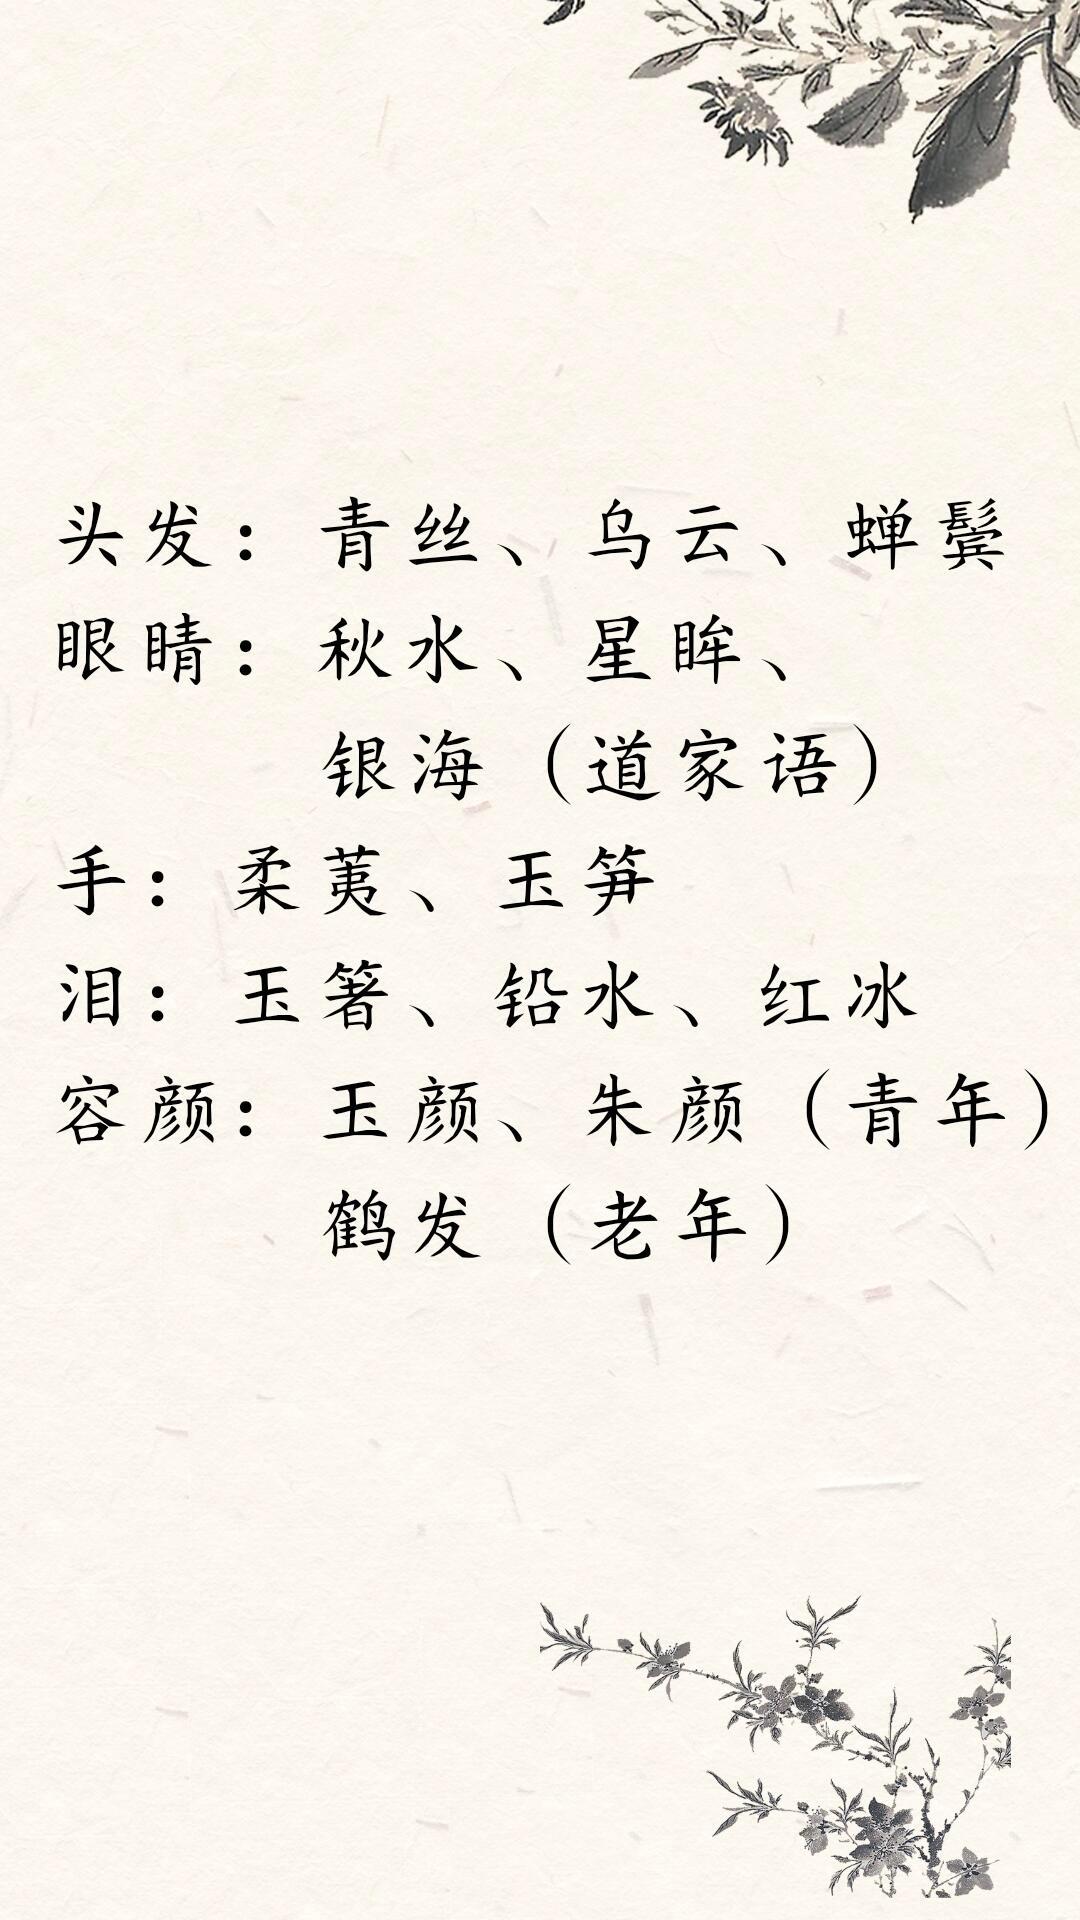 头发：青丝、乌云、蝉鬓
眼睛：秋水、星眸、
银海（道家语）
手：柔荑、玉笋
泪：玉箸、铅水、红冰
容颜：玉颜、朱颜（青年）
鹤发（老年）